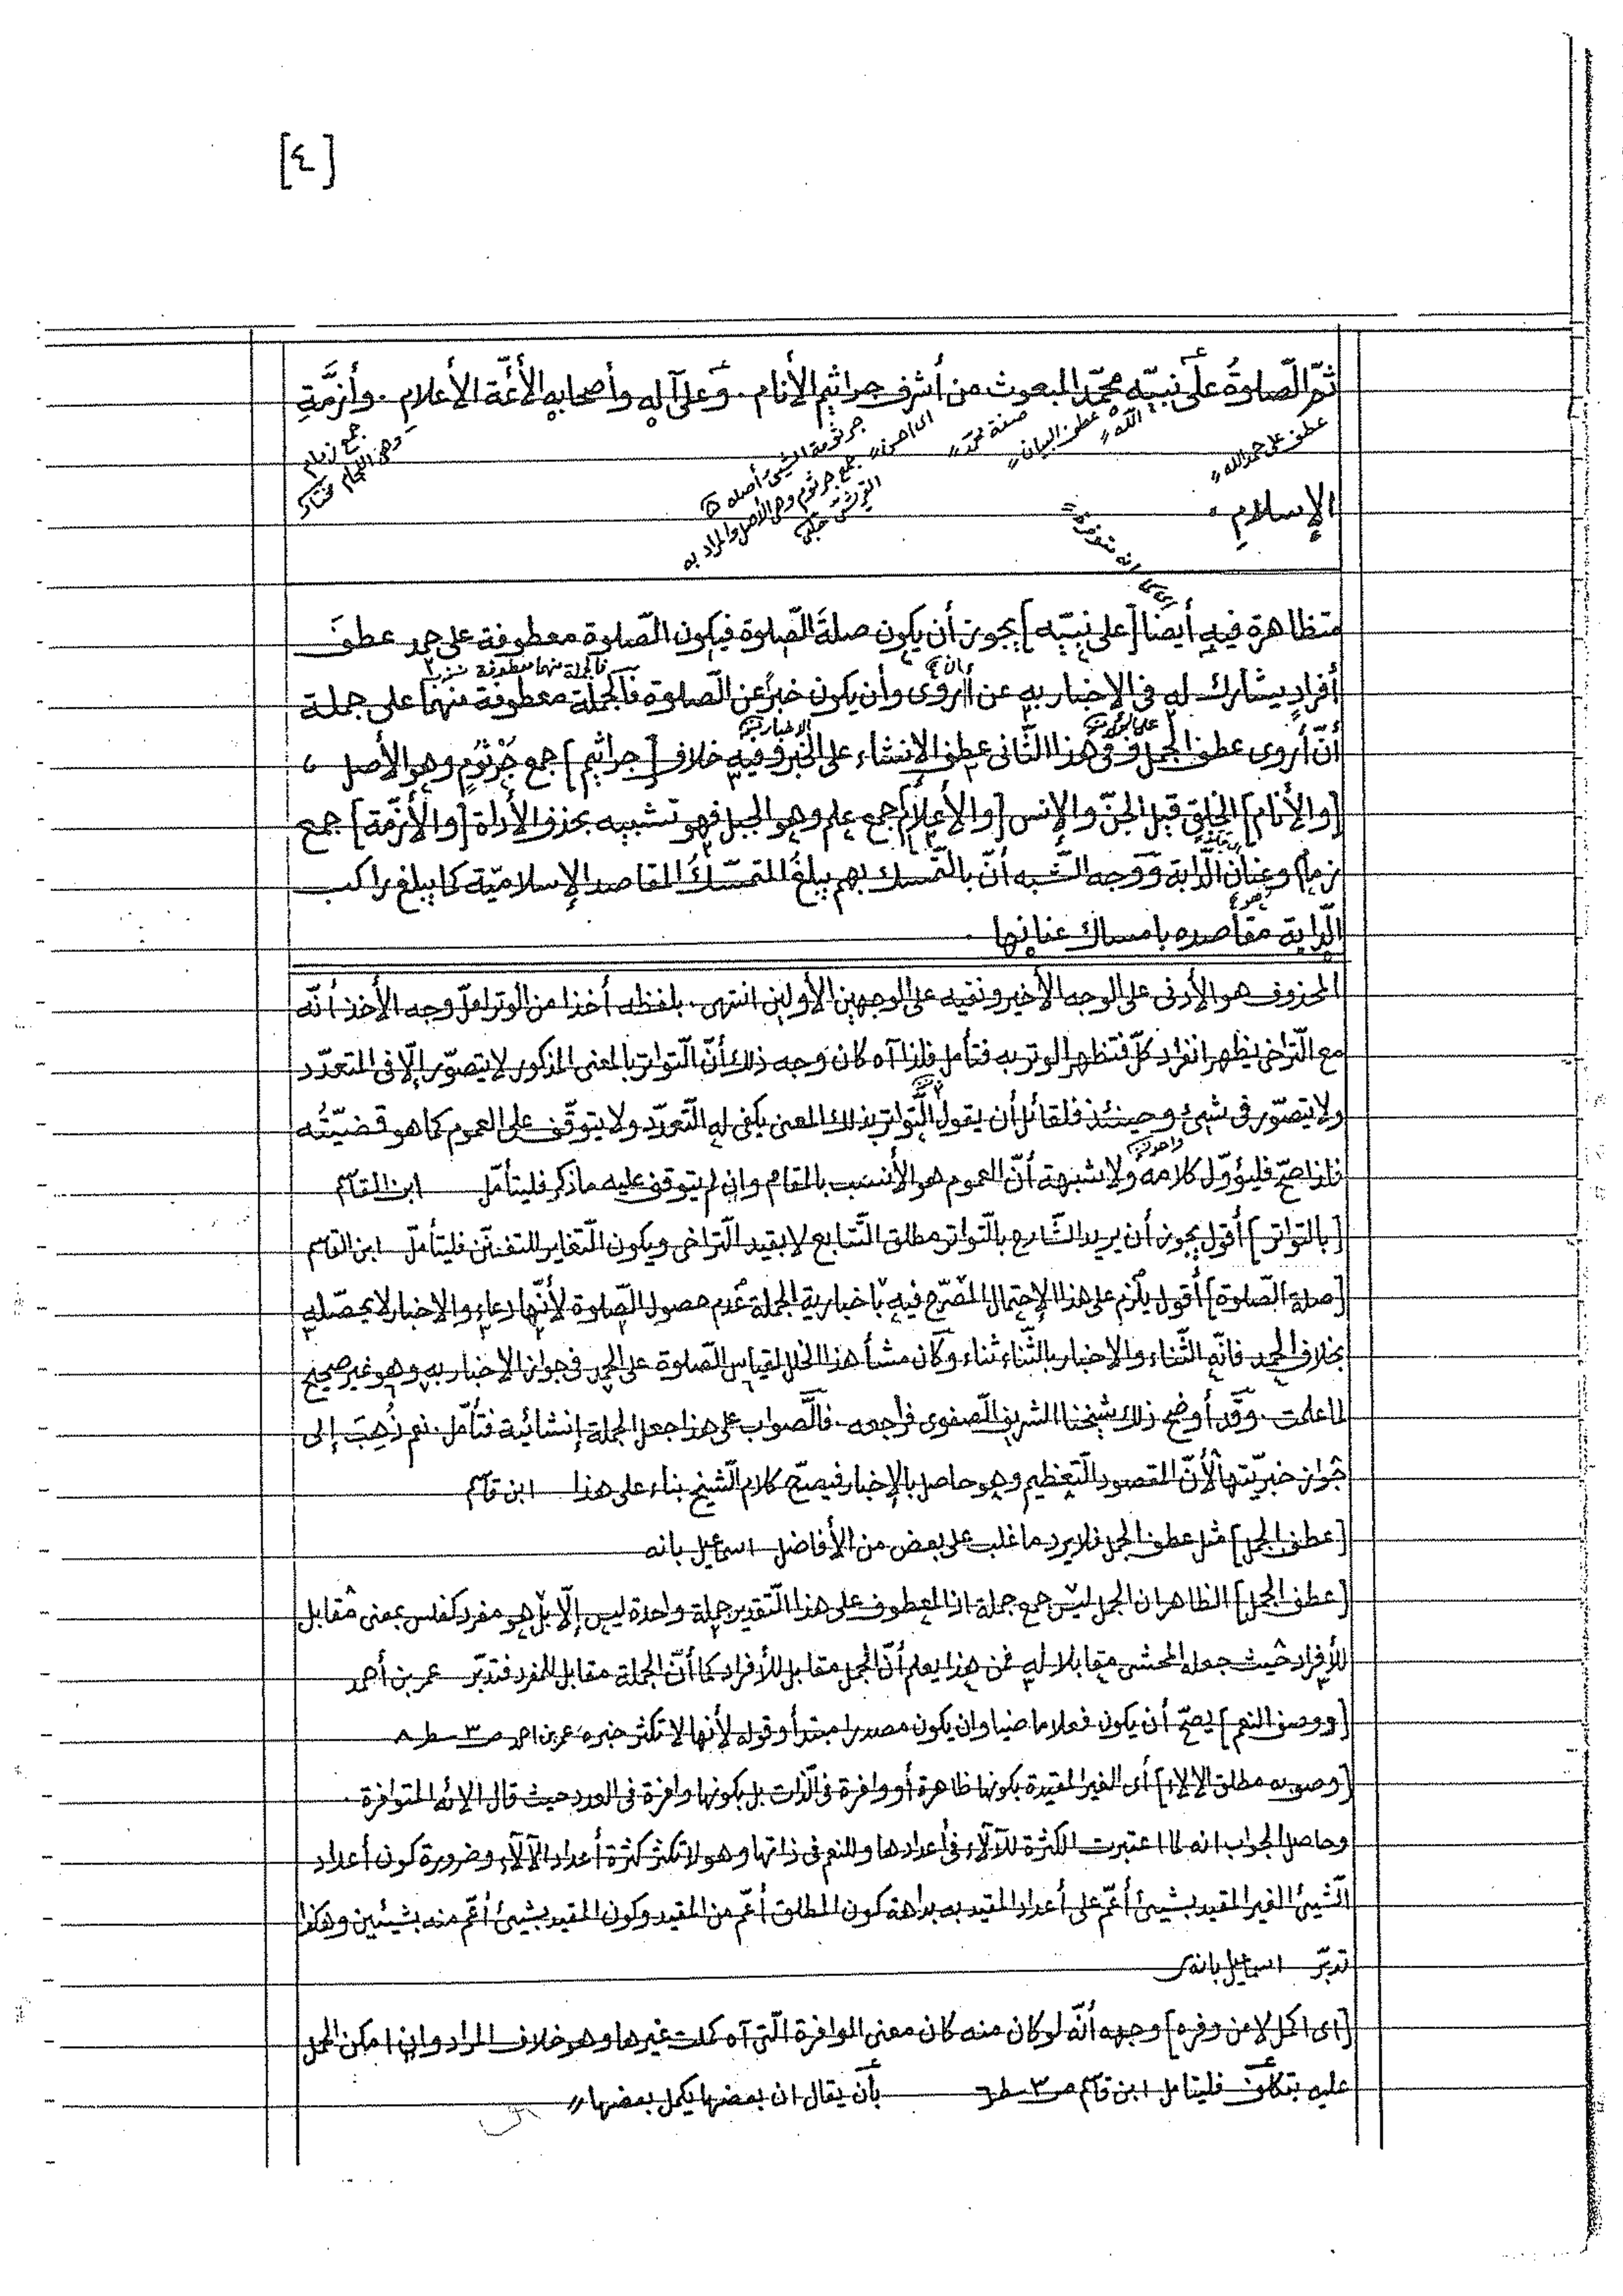 [٤]
ثمّ الصّلوةُ على نبيّه محمّد المبعوث من أشرف جراثيم الأنام . وَعلى آله وأصحابه الأئمّة الأعلام . وأزمَّةِ
عطف على حمد الله
الله
عطف البيان
صفة محمّد
جرثومة الشيئ أصله
جمع جرثوم وهى الأصل والمراد به
القريش
جمع زمام
وهى اللجام مختار
الإسلامِ .
متظاهرة فيه أيضا [على نبيّه] يجوز أن يكون صلةَ الصّلوة فيكون الصّلوة معطوفة على حمد عطفَ
فالجملة منهما معطوفة
أفرادٍ يشارك له فى الإخبار به عن أروى وأن يكون خبرً عن الصّلوة فالجملة معطوفة منهما على جملة
أنّ أروى عطف الجمل وفى هذا الثّانى عطف الإنشاء على الخبر وفيه خلاف [جراثيم] جمع جُرْثُومٍ وهو الأصل ،
[والأنام] الخلق قيل الجنّ والإنس [والأعلام] جمع علم وهو الجبل فهو تشبيه بحذف الأداة [والأزمّة] جمع
زمام وعنان الدّابة وَوَجه الشّبه أنّ بالتّمسك بهم يبلغُ المتمسّكُ المقاصد الإسلاميّة كما يبلغ راكب
الدّابة مقاصده بامساك عنانها .
المحذوف هو الأدنى على الوجه الأخير ونفيه على الوجهين الأولين انتهى . بلفظه أخذا من الوتر لعلّ وجه الأخذ أنّه
مع التّراخى يظهر انفراد كلّ فتظهر الوتر به فتأمل فلذا آه كان وجه ذلك أنّ التّواتر بالمعنى المذكور لا يتصوّر إلّا فى المتعدّد
ولا يتصوّر فى شيئ وحينئذ فلقائل أن يقول التّواتر بذلك المعنى يكفى له التّعدّد ولا يتوقّف على العموم كما هو قضيّتُه
فاذا صحّ فليؤوّل كلامه ولا شبهة أنّ العموم هو الأنسب بالمقام وان لم يتوقف عليه ماذكر فليتأمّل ابن القاسم
[بالتواتر] أقول يجوز أن يريد الشّارح بالتّواتر مطلق التّتابع لا بقيد التّراخى ويكون التّغاير للتفنّن فليتأمل ابن القاسم
[صلة الصّلوة] أقول يلزم على هذا الإحتمال المصّرح فيه باخبارية الجملة عدم حصول الصّلوة لأنّها دعاء والاخبار لا يحصّله
بخلاف الحمد فانّه الثّناء والاخبار بالثّناء ثناء وكان منشأ هذا الخلل لقياس الصّلوة على الحمد فى جواز الاخبار به وهو غير صحيح
لما علمت . وقد أوضح ذلك شيخنا الشريف الصّفوى فراجعه . فالصّواب على هذا جعل الجملة إنشائية فتأمّل . نعم ذُهِبَ إلى
جواز خبريّتها لأنّ المقصود التّعظيم وهو حاصل بالإخبار فيصحّ كلام الشّيخ بناء على هذا ابن قاسم
[عطف الجمل] مثل عطف الجمل فلا يرد ما غلب على بعض من الأفاضل اسماعيل بانه
[عطف الجمل] الظاهر ان الجمل ليس جمع جملة اذ المعطوف على هذا التّقدير جملة واحدة ليس إلّا بل هو مفرد كفلس بمعنى مقابل
للأفراد حيث جعله المحشى مقابلا له فمن هذا يعلم أنّ الجمل مقابل للأفراد كما أنّ الجملة مقابل للمفرد فتدبّر عمر بن أحمد
[ووصف النعم] يصحّ أن يكون فعلا ماضيا وان يكون مصدرا مبتدأ وقوله لأنها لا تكثر خبره عمر بن احمد ص ٣ سطر ٨
[وصوبه مطلق الالاء] أى الغير المقيدة بكونها ظاهرة أو وافرة فى الذات بل بكونها وافرة فى العدد حيث قال الائه المتوافرة .
وحاصل الجواب انه لما اعتبرت الكثرة للآلاء فى أعدادها وللنعم فى ذاتها وهو لا تكثر كثرة أعداد الآلاء وضرورة كون أعداد
الشّيئ الغير المقيد بشيئ أعمّ على أعداد المقيد به بداهة كون المطلق أعمّ من المقيد وكون المقيد بشيئ أعمّ منه بشيئين وهكذا
تدبّر اسماعيل بانه
[اى اكمل لا من وفره] وجهه أنّه لو كان منه كان معنى الوافرة الّتى آه كملت غيرها وهو خلاف المراد وان امكن الحمل
عليه بتكلّف فليتامل ابن قاسم ص ٣ سطر ٦ بأن يقال ان بعضها يكمل بعضها